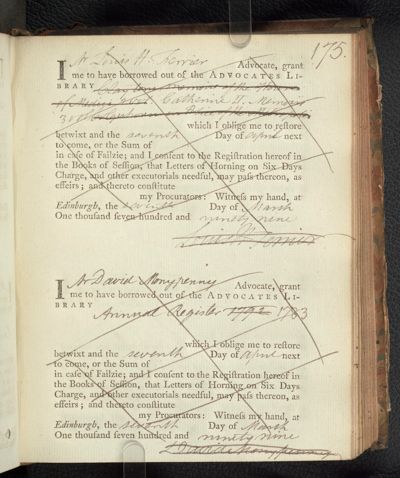 175.
I Mr Louis H. Ferrier Advocate, grant
me to have borrowed out of the ADVOCATES LI-
BRARY Memoirs of the House
of Medicis Catherine II. Memoirs
3
which I oblige me to reſtore
betwixt and the seventh Day of April next
to come, or the Sum of
in caſe of Failzie; and I conſent to the Regiſtration hereof in
the Books of Seſſion, that Letters of Horning on Six Days
Charge, and other executorials needful, may paſs thereon, as
effeirs; and thereto conſtitute
my Procurators: Witneſs my hand, at
Edinburgh, the seventh Day of March
One thouſand ſeven hundred and ninety nine
Louis H. Ferrier
I Mr David Monypenny Advocate, grant
me to have borrowed out of the ADVOCATES LI-
BRARY
Annual Register 1792 1783
which I oblige me to reſtore
betwixt and the seventh Day of April next
to come, or the Sum of
in caſe of Failzie; and I conſent to the Regiſtration hereof in
the Books of Seſſion, that Letters of Horning on Six Days
Charge, and other executorials needful, may paſs thereon, as
effeirs; and thereto conſtitute
my Procurators: Witneſs my hand, at
Edinburgh, the seventh Day of March
One thouſand ſeven hundred and ninety nine
David Monypenny